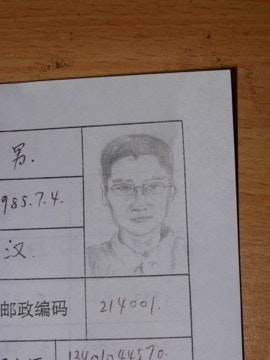 男.
1985.7.4.
汉
邮政编码 214001.
13401044570.